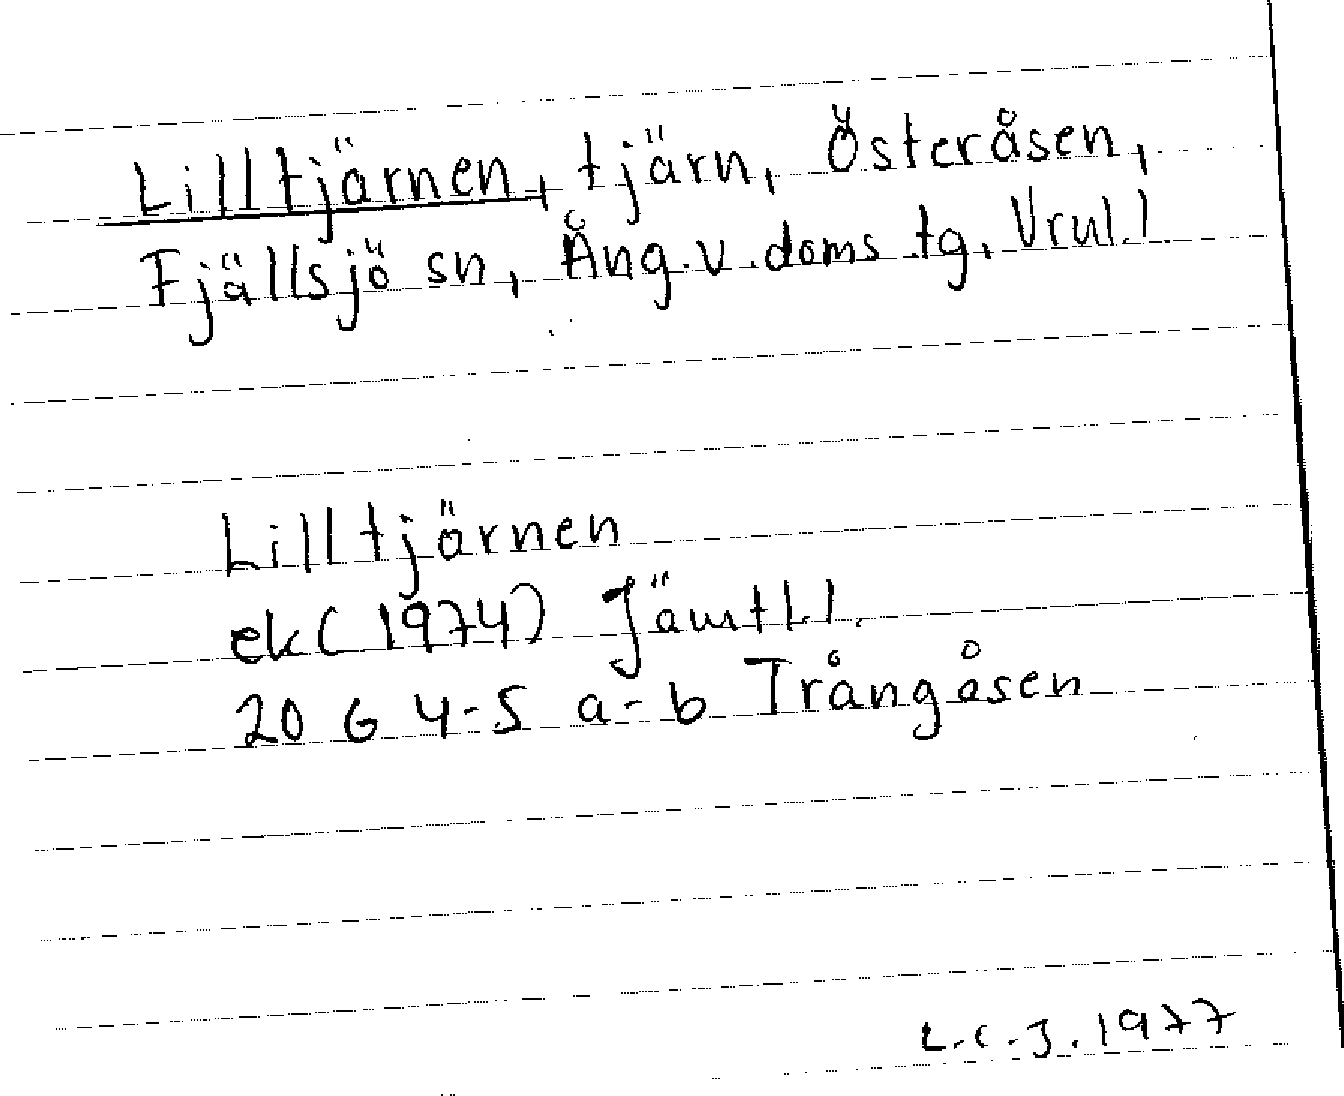 Lilltjärnen, tjärn, Österåsen,
Fjällsjö sn, Ång.v.doms tg,
Lilltjärnen
ek(1974) Jämtl.l.
20 G 4-5 a-b Trångåsen
L.C.J. 1977